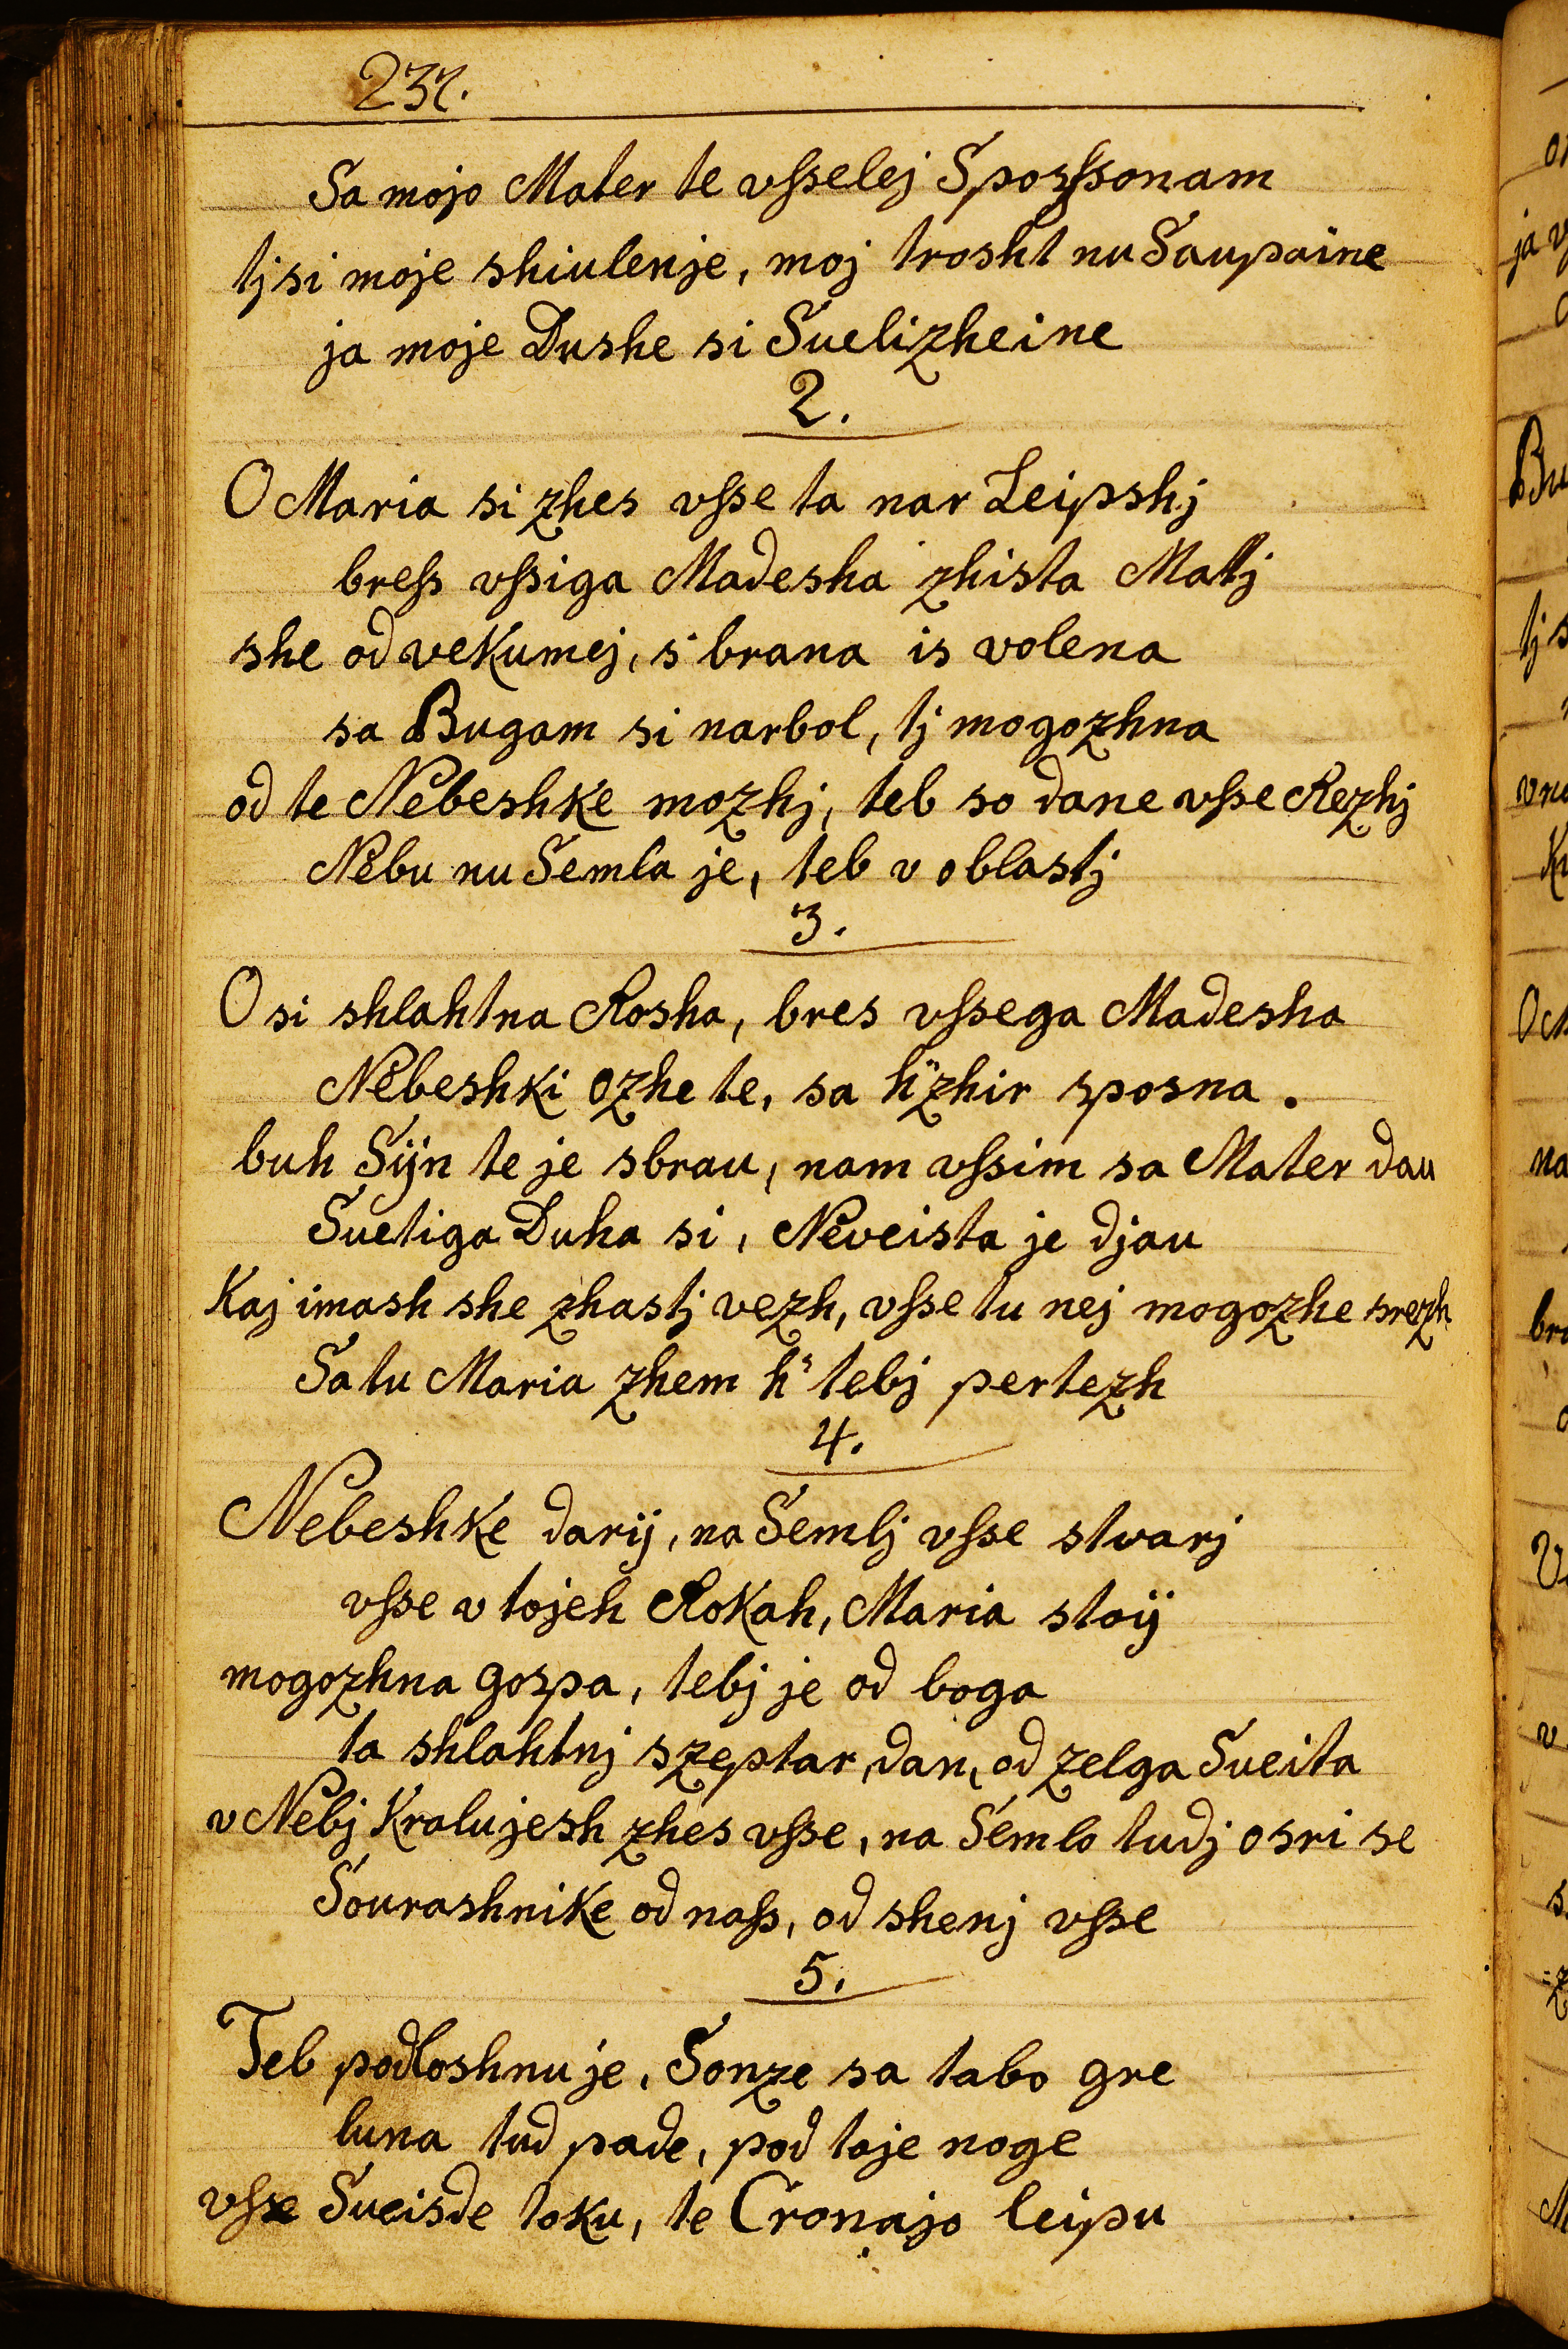 237.
Sa mojo Mater te vsselej Sposssonam
tj si moje shiulenje, moj trosht nu Saupaine
ja moje Dushe si Suelizheine
2.
O Maria si zhes vsse ta nar Leipshj
bress vssiga Madesha zhista Matj
she od vekumej, s' brana is volena
sa Bugam si narbol, tj mogozhna
od te Nebeshke mozhj, teb so dane vsse Rezhj
Nebu nu Semla je, teb v oblastj
3.
O si shlahtna Rosha, bres vssega Madesha
Nebeshki ozhe te, sa h" zhir sposna.
buh Sijn te je sbrau, nam vssim sa Mater dau
Suetiga Duha si, Neveista je djau
Kaj imash she zhastj vezh, vsse tu nej mogozhe srezh
Satu Maria zhem h" tebj pertezh
4.
Nebeshke darij, na Semlj vsse stvarj
vsse v tojeh Rokah, Maria stoij
mogozhna gospa, tebj je od boga
ta shlahtnj szeptar, dan, od zelga Sueita
v Nebj Kralujesh zhes vsse, na Semlo tudj osri se
Sourashnike od nass, od shenj vsse
5.
Teb podloshnu je, Sonze sa tabo gre
luna tud pade, pod toje noge
vsse Sueisde toku, te Cronajo leipu